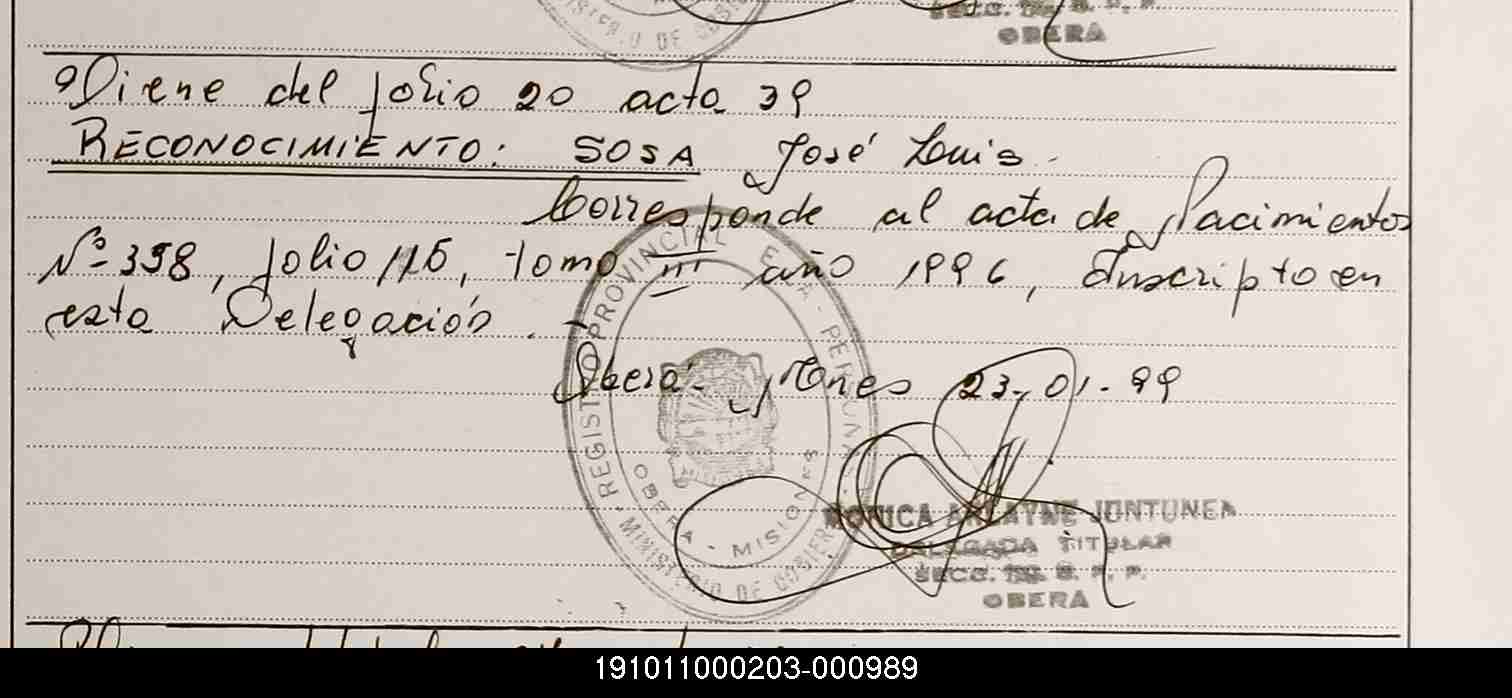 SECC. TG. R. P. P.
OBERA
Viene del folio 20 acta 39
RECONOCIMIENTO: SOSA José Luis.-
Corresponde al acta de Nacimientos
Nº 398, folio 115, tomo III año 1996, Inscripto en
esta Delegación.-
Oberá- Mnes 23-01-99
REGISTRO PROVINCIAL DE LAS PERSONAS
MINISTERIO DE GOBIERNO
OBERA - MISIONES
MONICA ARLAYNE JONTUNEN
DELEGADA TITULAR
OBERA
191011000203-000989